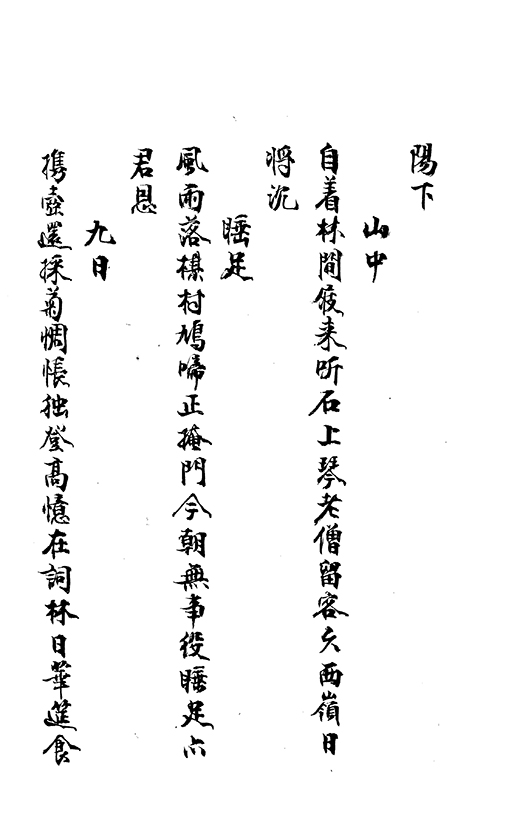 陽下
山中
自着林間屐来听石上琴老僧留客久西嶺日
将沉
睡足
風雨落村鳩啼正掩門今朝無事役睡足亦
君恩
九日
携壺還採菊惆悵独登高憶在詞林日華筵食